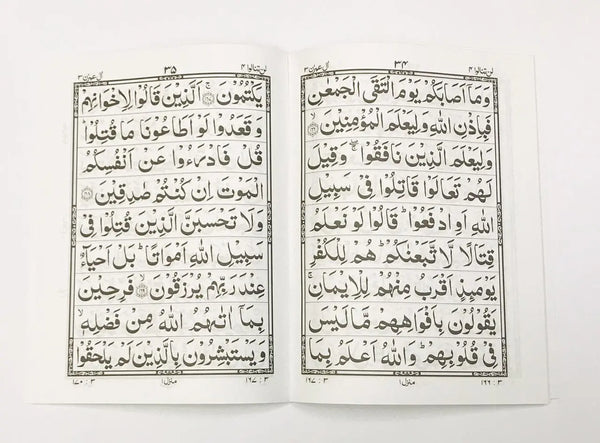 لن تنالوا ۴
۳۴
اٰل عمرٰن ۳
وَمَاۤ اَصَابَكُمْ يَوْمَ الْتَقَى الْجَمْعٰنِ
فَبِاِذْنِ اللّٰهِ وَلِيَعْلَمَ الْمُؤْمِنِيْنَ ۙ۝۱۶۶
وَلِيَعْلَمَ الَّذِيْنَ نَافَقُوْا ۖۚ وَقِيْلَ
لَهُمْ تَعَالَوْا قَاتِلُوْا فِيْ سَبِيْلِ
اللّٰهِ اَوِ ادْفَعُوْا ؕ قَالُوْا لَوْ نَعْلَمُ
قِتَالًا لَّا تَّبَعْنٰكُمْ ؕ هُمْ لِلْكُفْرِ
يَوْمَىِٕذٍ اَقْرَبُ مِنْهُمْ لِلْاِيْمَانِ ۚ
يَقُوْلُوْنَ بِاَفْوَاهِهِمْ مَّا لَيْسَ
فِيْ قُلُوْبِهِمْ ؕ وَاللّٰهُ اَعْلَمُ بِمَا
۳ : ۱۶۶
منزل ۱
۳ : ۱۶۷
لن تنالوا ۴
۳۵
اٰل عمرٰن ۳
يَكْتُمُوْنَ ۚ۝۱۶۷ اَلَّذِيْنَ قَالُوْا لِاِخْوَانِهِمْ
وَقَعَدُوْا لَوْ اَطَاعُوْنَا مَا قُتِلُوْا ؕ
قُلْ فَادْرَءُوْا عَنْ اَنْفُسِكُمُ
الْمَوْتَ اِنْ كُنْتُمْ صٰدِقِيْنَ ۝۱۶۸
وَلَا تَحْسَبَنَّ الَّذِيْنَ قُتِلُوْا فِيْ
سَبِيْلِ اللّٰهِ اَمْوَاتًا ؕ بَلْ اَحْيَآءٌ
عِنْدَ رَبِّهِمْ يُرْزَقُوْنَ ۙ۝۱۶۹ فَرِحِيْنَ
بِمَاۤ اٰتٰىهُمُ اللّٰهُ مِنْ فَضْلِهٖ ۙ
وَيَسْتَبْشِرُوْنَ بِالَّذِيْنَ لَمْ يَلْحَقُوْا
۳ : ۱۶۷
منزل ۱
۳ : ۱۷۰